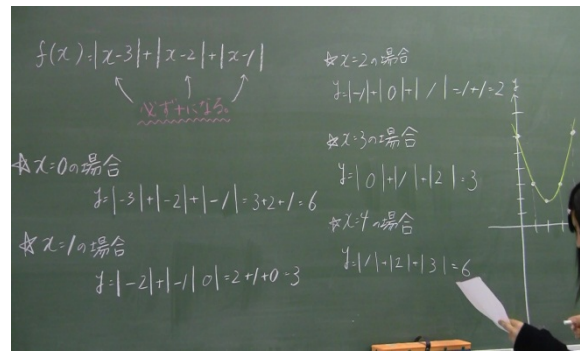 f(x)=|x-3|+|x-2|+|x-1|
必ず+になる。
☆x=0の場合
y=|-3|+|-2|+|-1|=3+2+1=6
☆x=1の場合
y=|-2|+|-1|0|=2+1+0=3
☆x=2の場合
y=|-1|+|0|+|1|=1+1=2
☆x=3の場合
y=|0|+|1|+|2|=3
☆x=4の場合
y=|1|+|2|+|3|=6
y